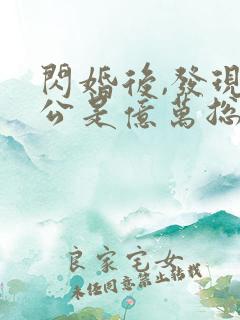 閃婚後,發現
公是億萬總
良家宅女
未經同意禁止轉載